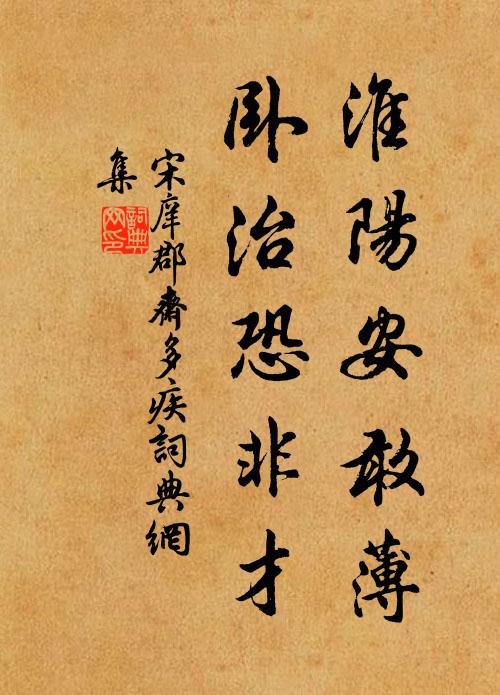 淮陽安敢薄
卧治恐非才
宋庠郡齋多疾詞典網
集
詞典網印